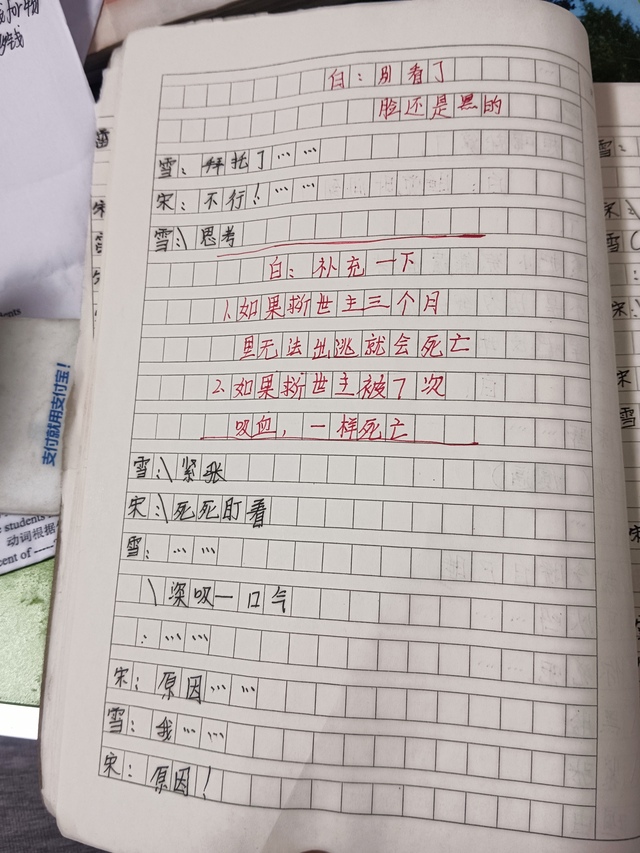 白：别看了
脸还是黑的
雪：拜托了……
宋：不行！……
雪：\思考
白：补充一下
1.如果救世主三个月
里无法出逃就会死亡
2.如果救世主被7次
吸血，一样死亡
雪：\紧张
宋：\死死盯着
雪：……
\深吸一口气
：……
宋：原因……
雪：我……
宋：原因！
支付就用支付宝！
students
动词根据